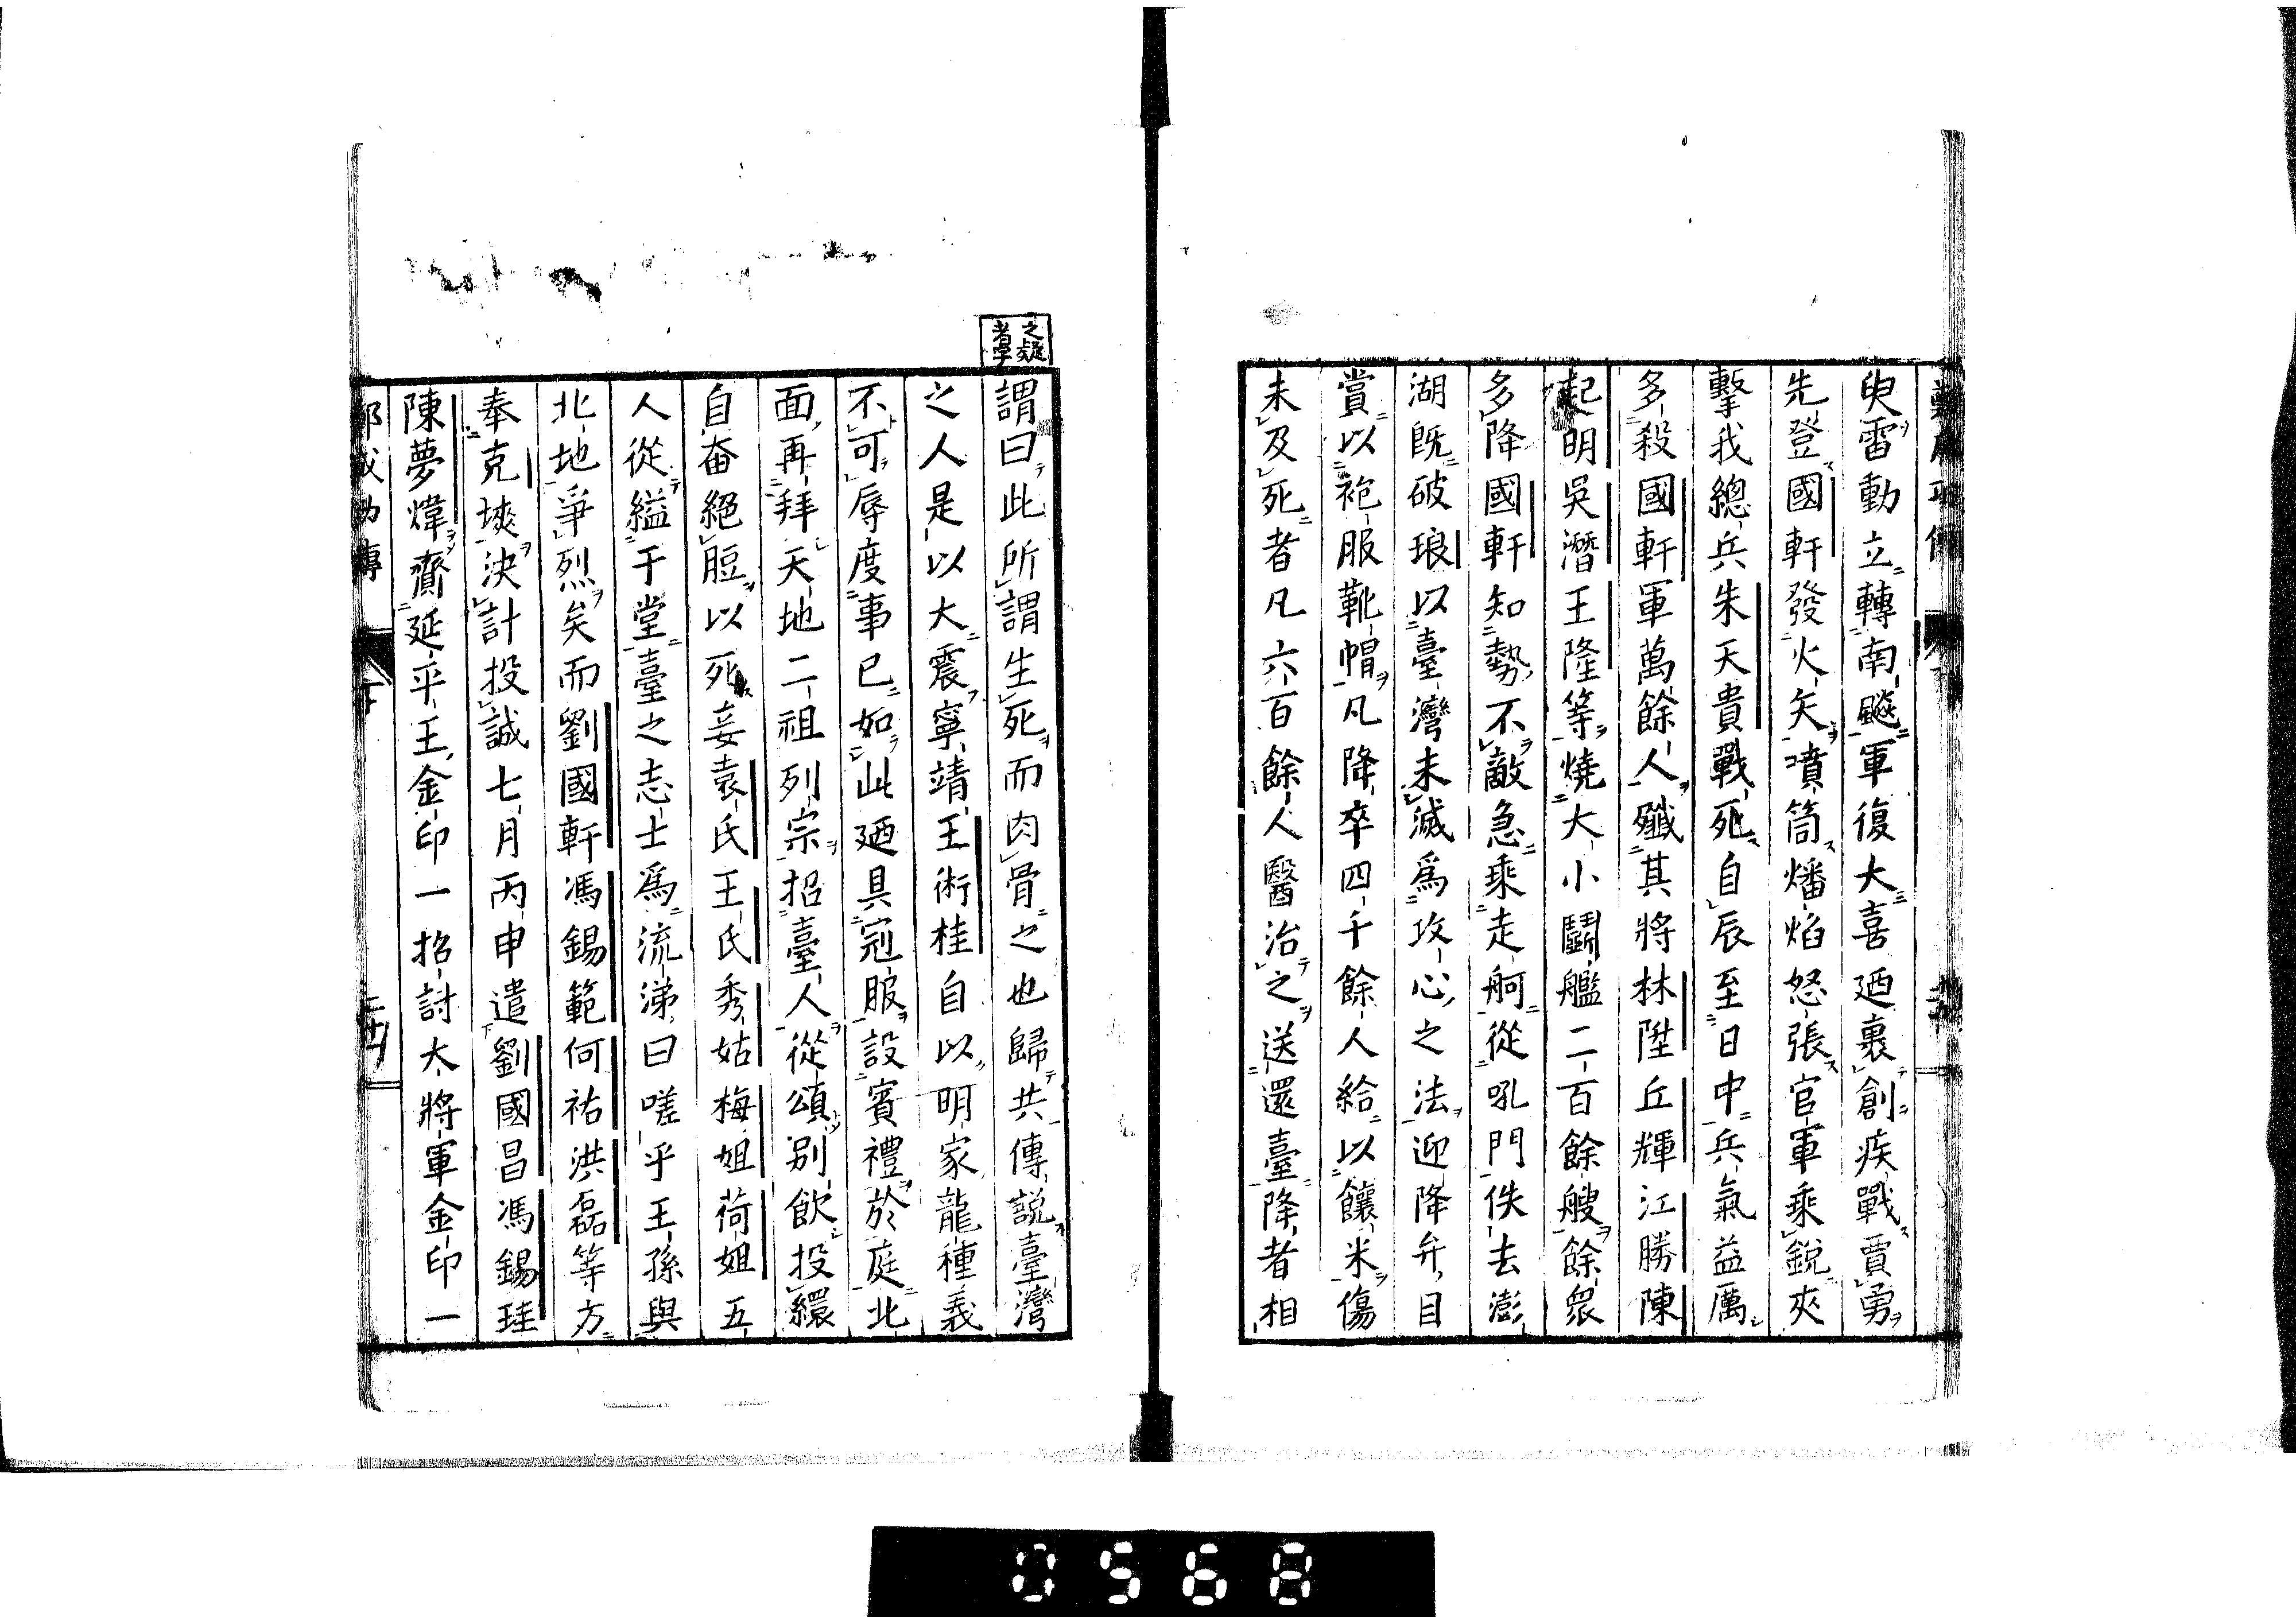 臾雷動立轉南颷軍復大喜廼裹創疾戰賈勇
先登國軒發火矢噴筒燔焰怒張官軍乘銳夾
擊我總兵朱天貴戰死自辰至日中兵氣益厲
多殺國軒軍萬餘人殲其將林陞丘輝江勝陳
起明吳潛王隆等燒大小鬪艦二百餘艘餘衆
多降國軒知勢不敵急乘走舸從吼門佚去澎
湖既破琅以臺灣未滅爲攻心之法迎降弁目
賞以袍服靴帽凡降卒四千餘人給以饟米傷
未及死者凡六百餘人醫治之送還臺降者相
之疑
者學
謂曰此所謂生死而肉骨之也歸共傳說臺灣
之人是以大震寧靖王術桂自以明家龍種義
不可辱度事已如此廼具冠服設賓禮於庭北
面再拜天地二祖列宗招臺人從頌別飲投繯
自奮絕脰以死妾袁氏王氏秀姑梅姐荷姐五
人從縊于堂臺之志士爲流涕曰嗟乎王孫與
北地爭烈矣而劉國軒馮錫範何祐洪磊等方
奉克塽決計投誠七月丙申遣劉國昌馮錫珪
陳夢煒齎延平王金印一招討大將軍金印一
成功傳
0568